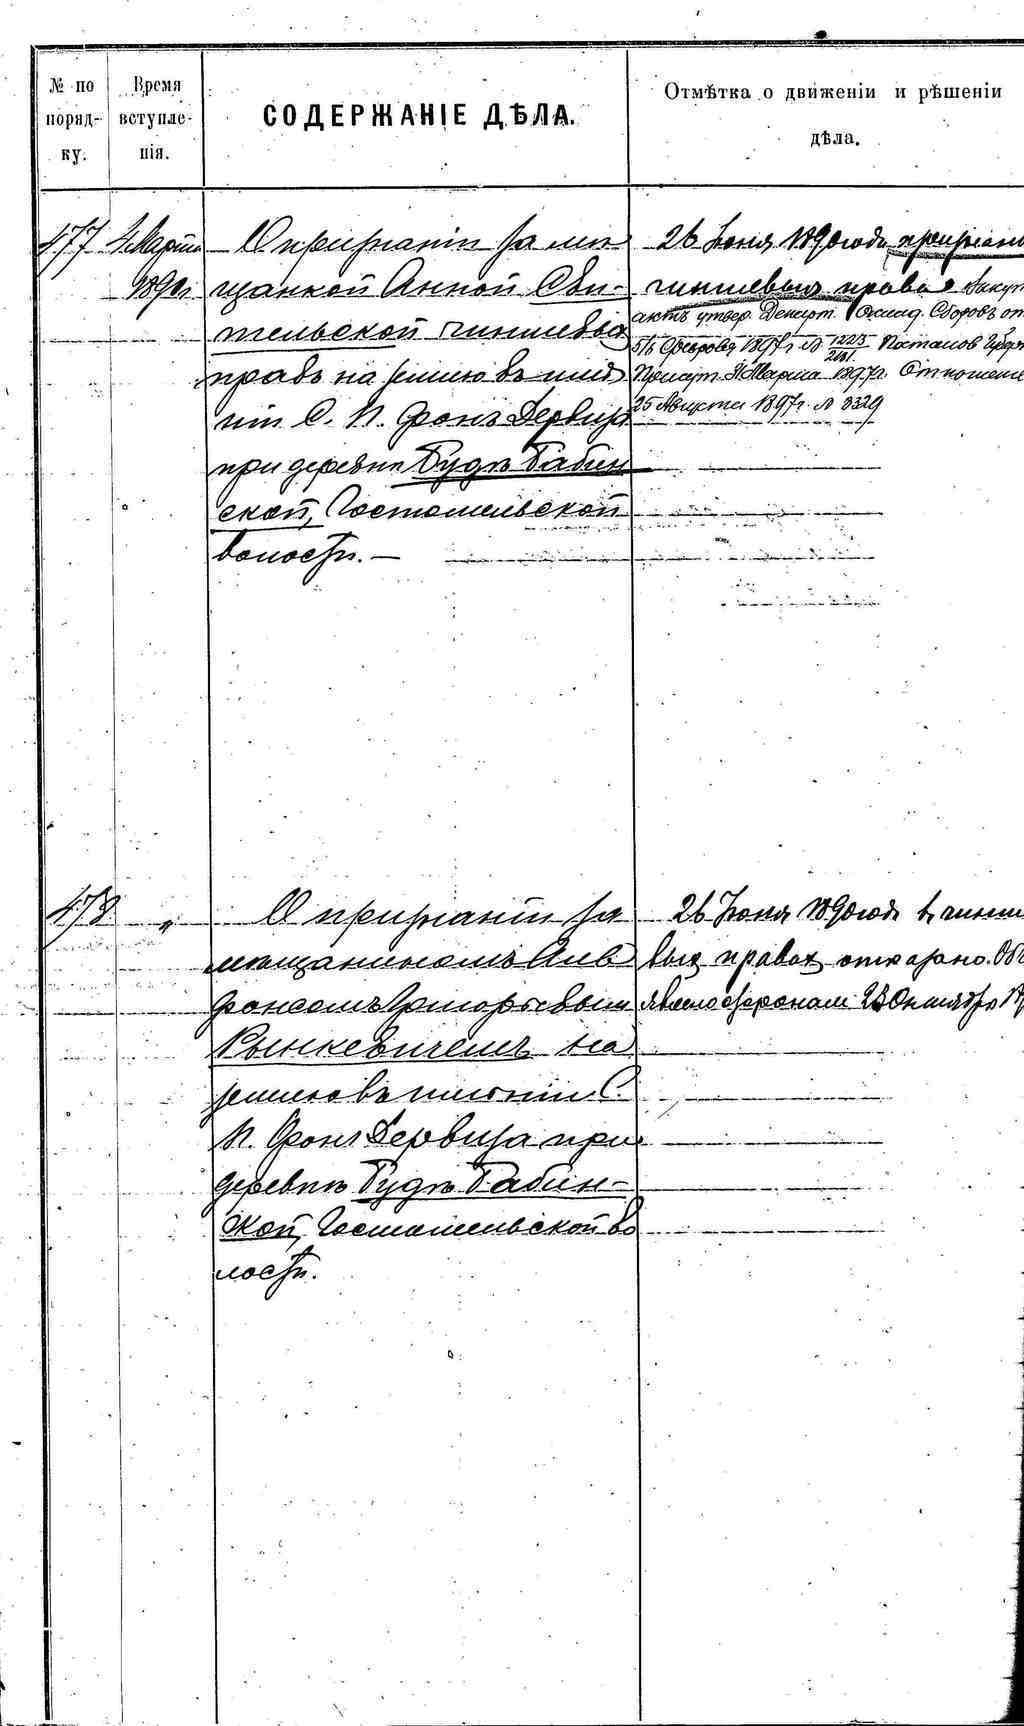 № по
поряд-
ку.
Время
вступле-
нія.
СОДЕРЖАНІЕ ДѢЛА.
Отмѣтка о движеніи и рѣшеніи
дѣла.
477
4 Марта
1890 г.
О признаніи за мѣ
щанкой Анной Сви-
тельской чиншевыхъ
правъ на землю въ имѣ
ніи С. П. фонъ Дервиза
при деревнѣ Будѣ Бабин
ской, Гостомельской
волости. —
26 Іюня 1890 года признаны
чиншевыя права
актъ утвер. Департ. Оклад. Сборовъ от
5/15 Февраля 1897 г. № 1223/2181 Постанов Губерн
Присут. Марта 1897 г. Отношеніе
25 Августа 1897 г. № 3329
478
"
О признаніи за
мѣщаниномъ Аль
фонсомъ Григорьевым
Рынкевичемъ на
землю въ имѣніи С.
П. Фонъ Дервиза при
деревнѣ Будѣ Бабин-
ской, Гостомельской во
лости.
26 Іюня 1890 года въ чинше
выхъ правахъ отказано. Объ
явлено сторонам 23 Октября